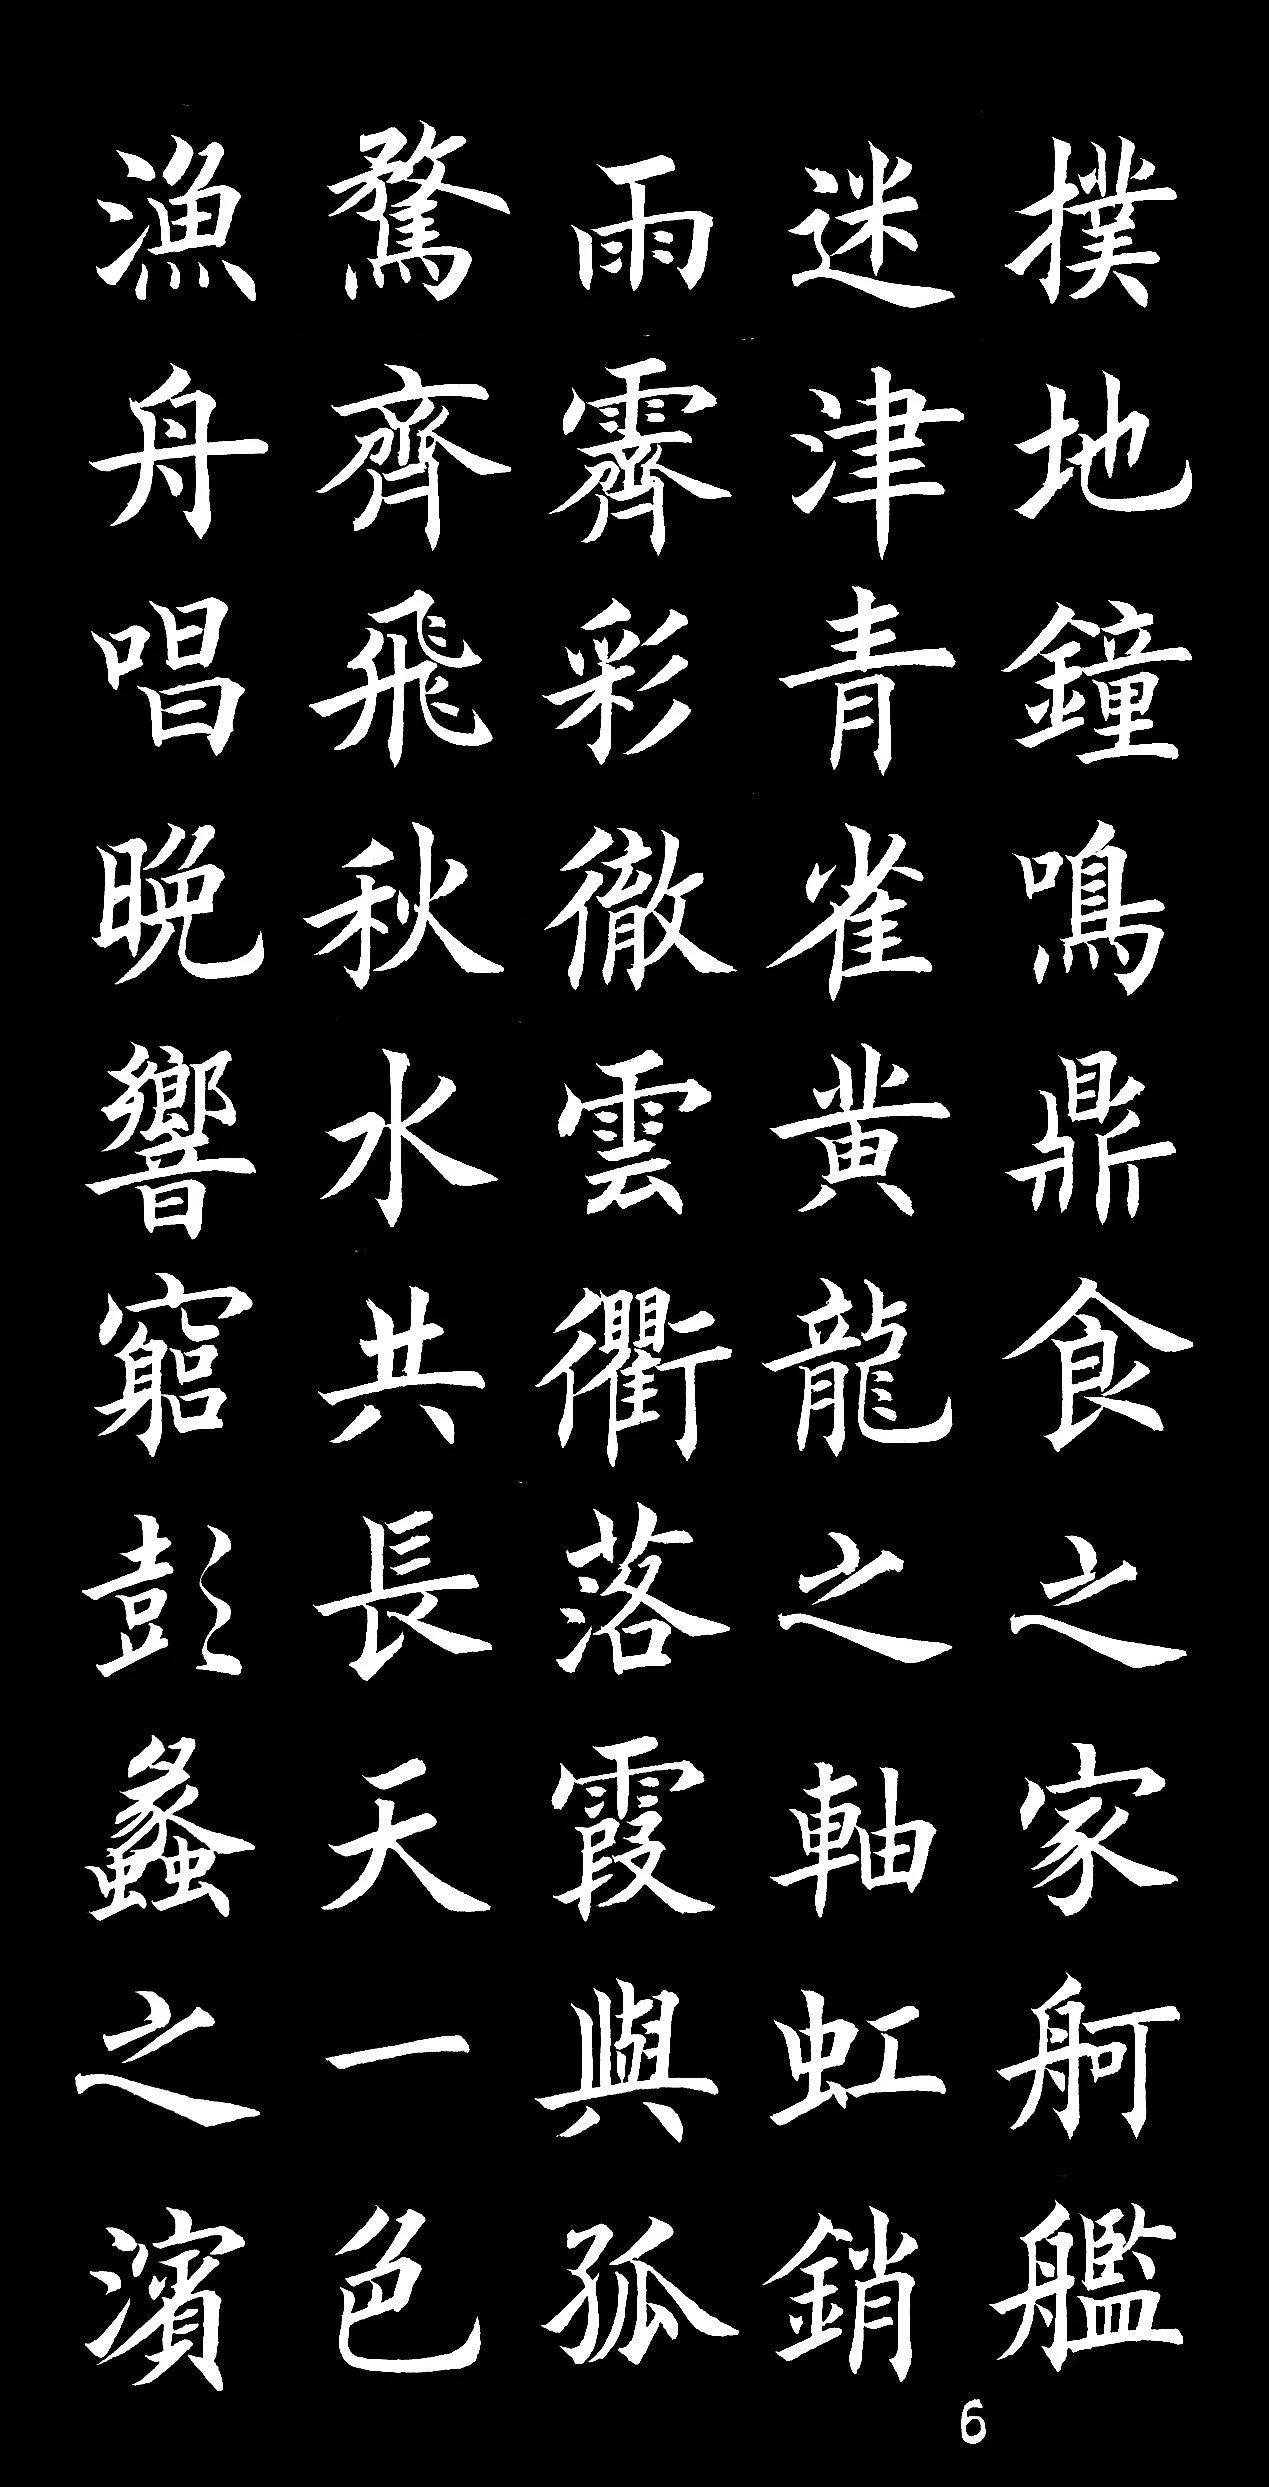 撲地鐘鳴鼎食之家舸艦
迷津青雀黄龍之軸虹銷
雨霽彩徹雲衢落霞與孤
騖齊飛秋水共長天一色
漁舟唱晚響窮彭蠡之濱
6